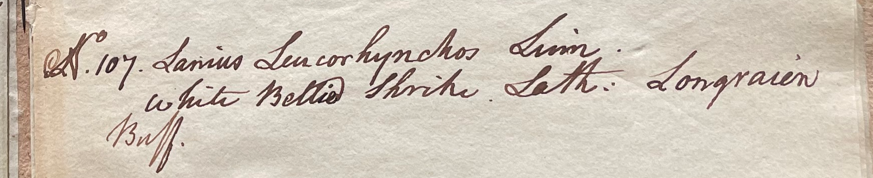 No. 107. Lanius Leucorhynchos Linn.
White Bellied Shrike. Lath: Longraien
Buff.